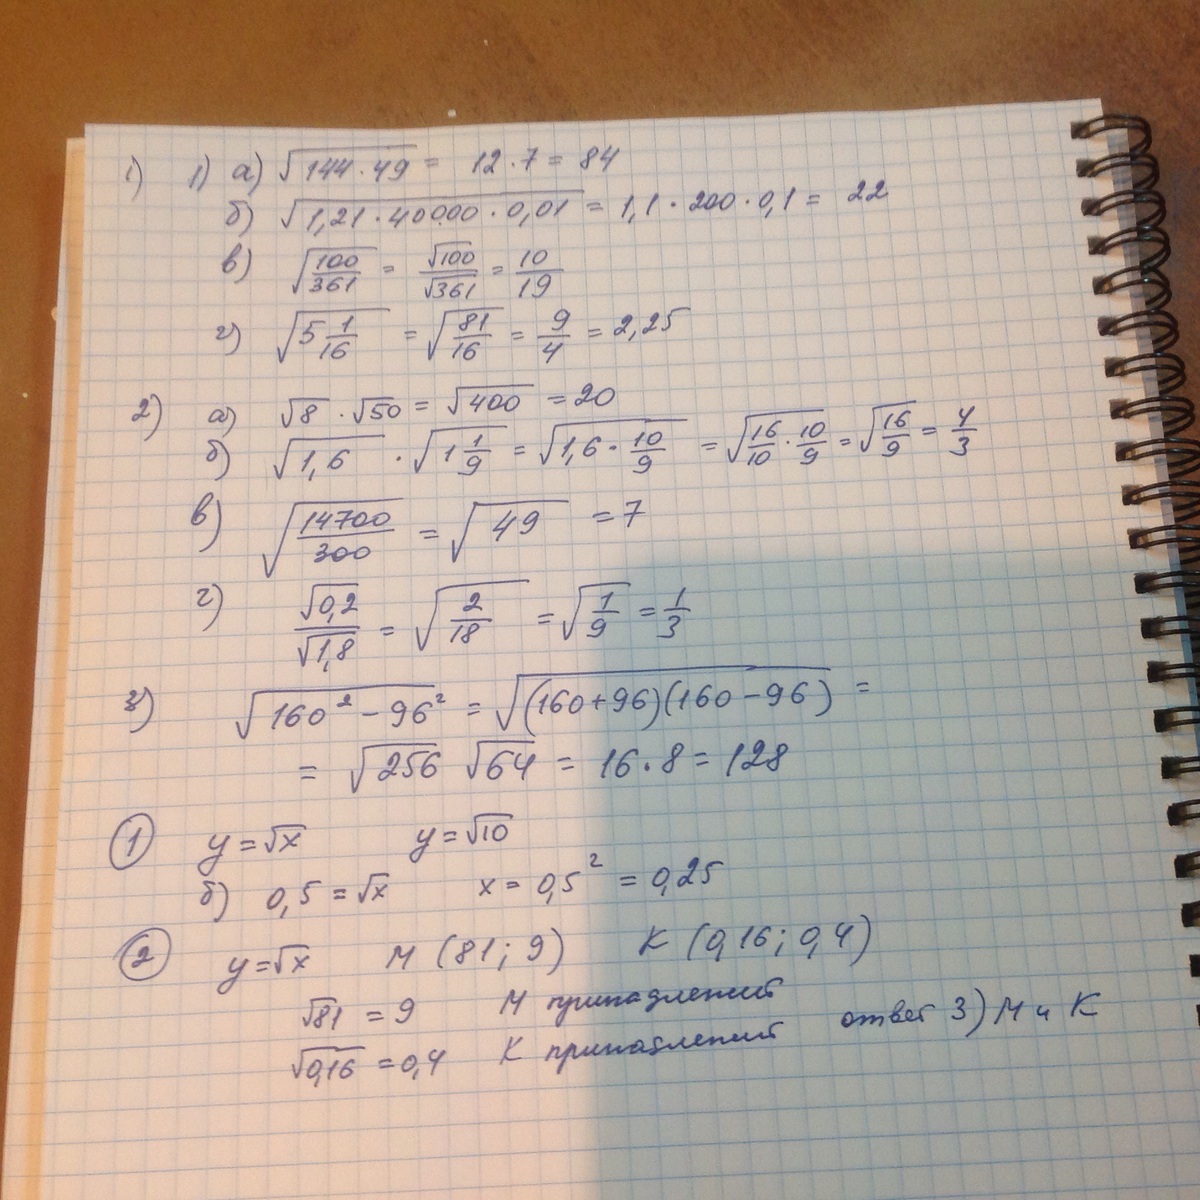 1) 1) а) √144·49 = 12·7 = 84
б) √1,21·40000·0,01 = 1,1·200·0,1 = 22
в) √100/361 = √100/√361 = 10/19
г) √5 1/16 = √81/16 = 9/4 = 2,25
2) а) √8 · √50 = √400 = 20
б) √1,6 · √1 1/9 = √1,6·10/9 = √16/10·10/9 = √16/9 = 4/3
в) √14700/300 = √49 = 7
г) √0,2/√1,8 = √2/18 = √1/9 = 1/3
3) √160² - 96² = √(160+96)(160-96) =
= √256 √64 = 16·8 = 128
① y=√x y=√10
б) 0,5 = √x x = 0,5² = 0,25
② y=√x М (81; 9) К (0,16; 0,4)
√81 = 9 М принадлежит
√0,16 = 0,4 К принадлежит ответ 3) М и К